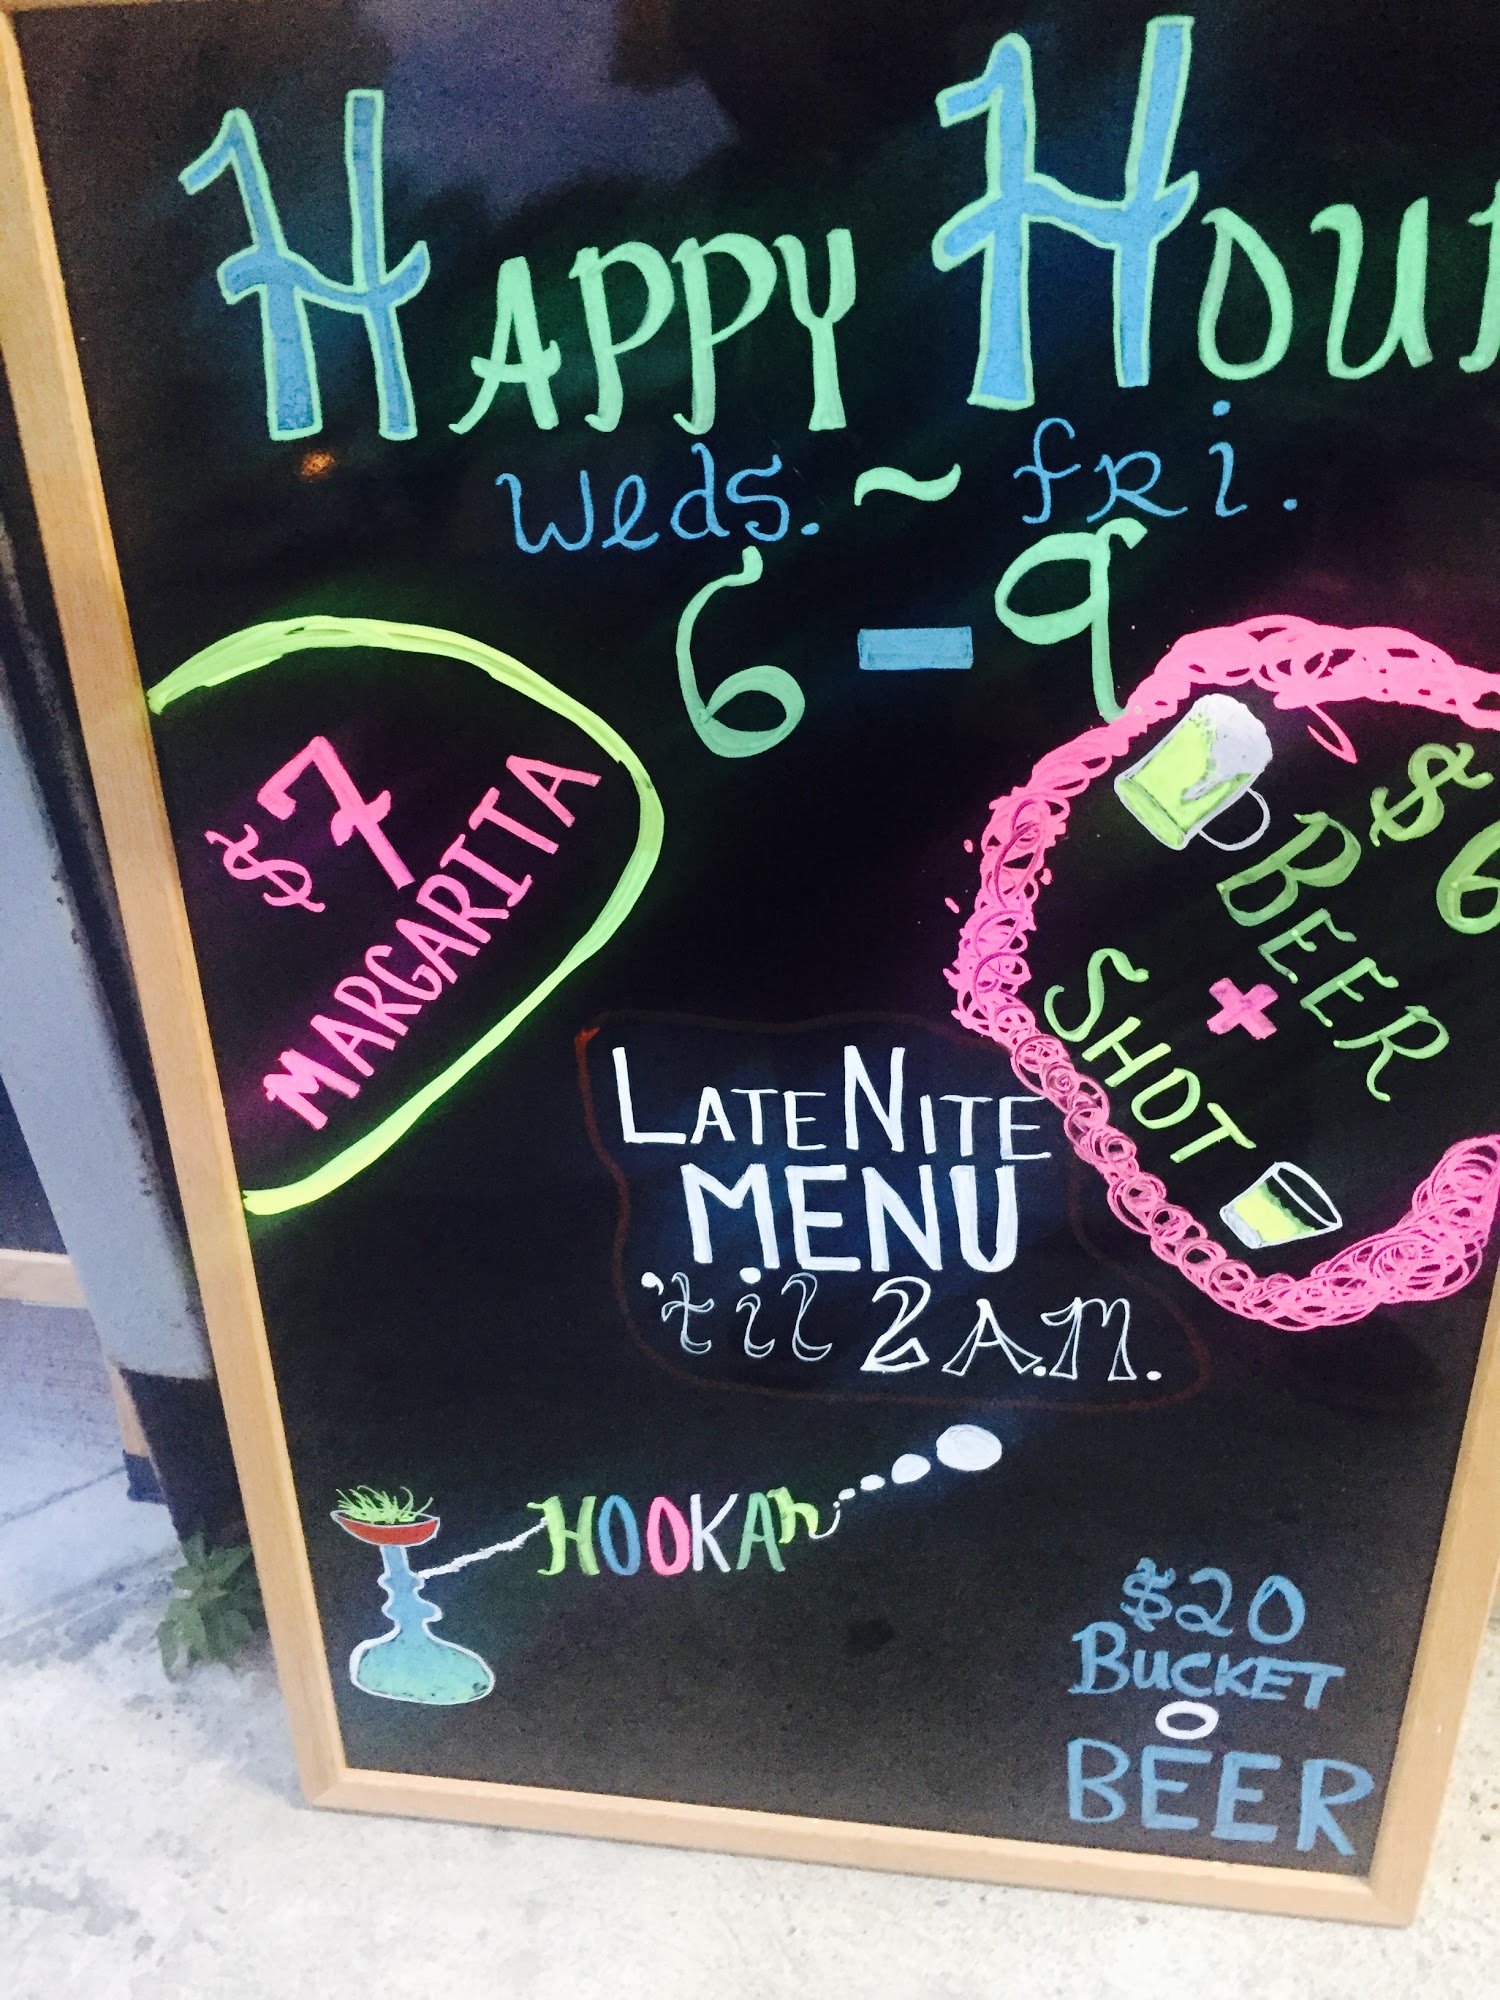 HAPPY HOUR
Weds. ~ fRi.
6 - 9
$7
MARGARITA
$6
BEER
+
SHOT
LATE NITE
MENU
'til 2 A.M.
HOOKAh
$20
BUCKET
O
BEER